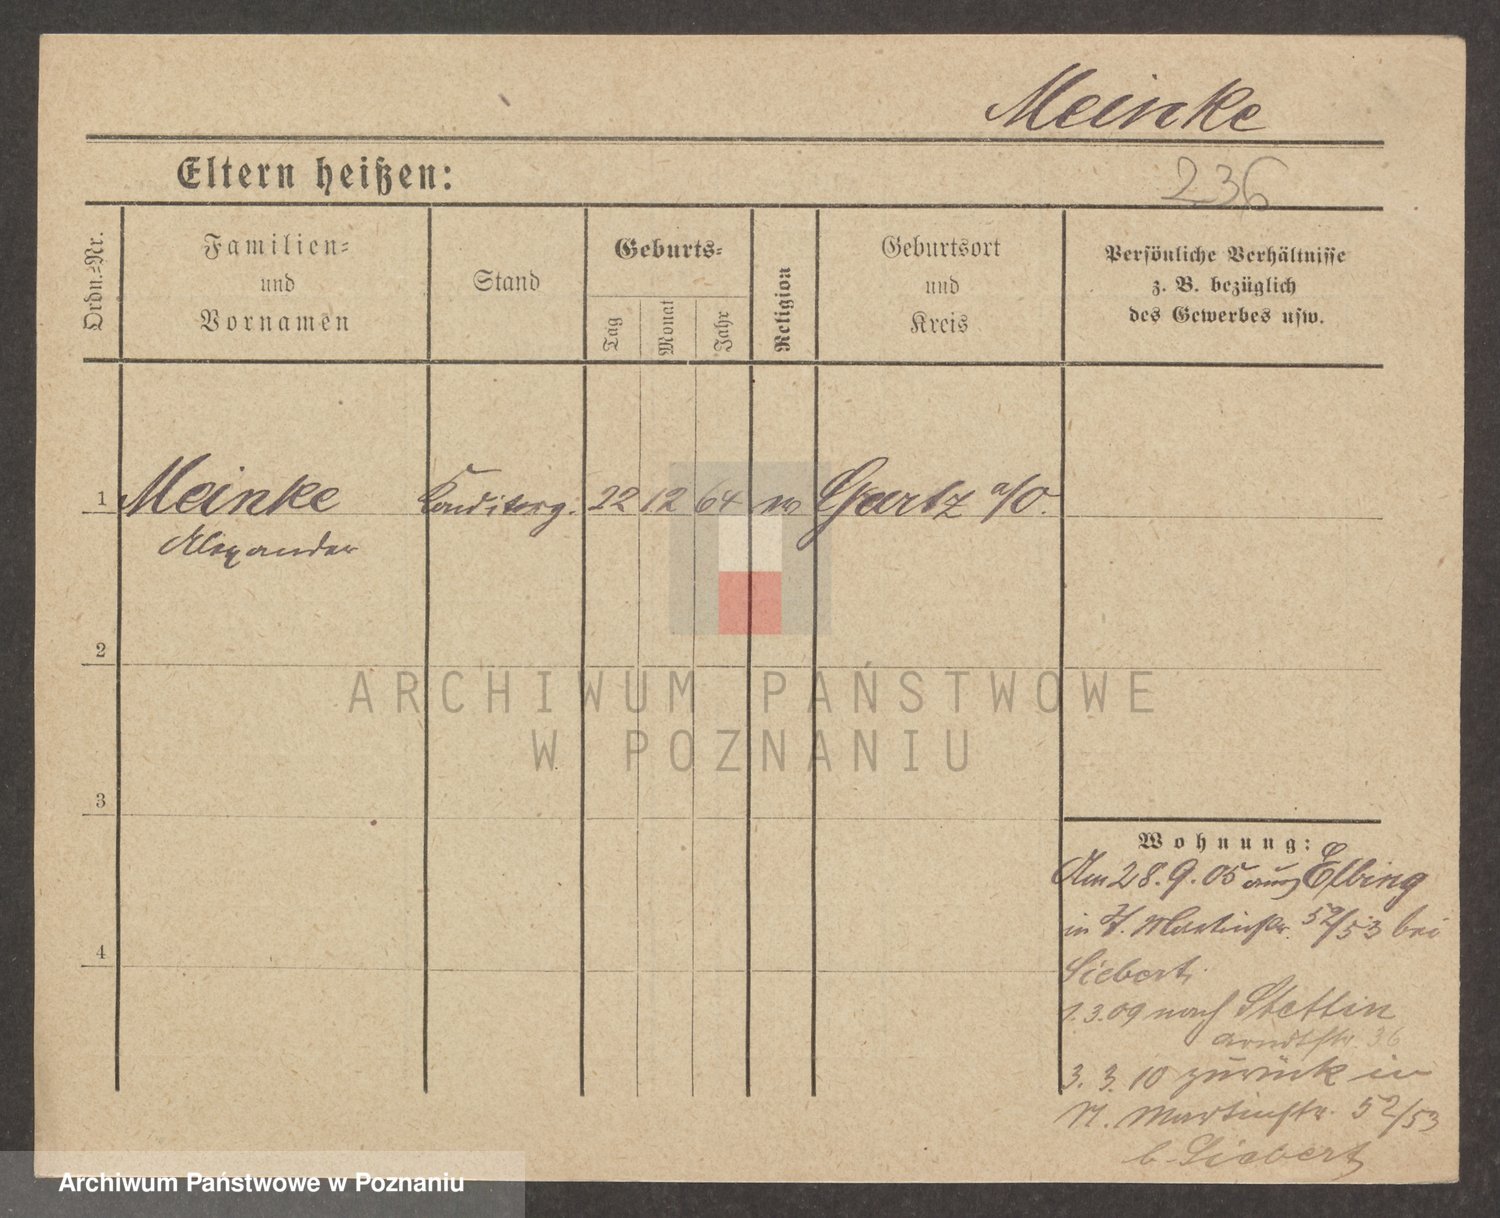 Meinke
Eltern heißen:
236
Ordn.=Nr.
Familien=
und
Vornamen
Stand
Geburts=
Tag
Monat
Jahr
Religion
Geburtsort
und
Kreis
Persönliche Verhältnisse
z. B. bezüglich
des Gewerbes usw.
1 Meinke Konditorg. 22 12 64 Gartz a/O.
Alexander
2
ARCHIWUM PAŃSTWOWE
W POZNANIU
3
4
Wohnung:
Am 28.9.05 aus Elbing
in St. Martinstr. 52/53 bei
Siebert.
1.3.09 nach Stettin
Arndtstr. 36
3. 3. 10 zurück in
St. Martinstr. 52/53
b. Siebert
Archiwum Państwowe w Poznaniu